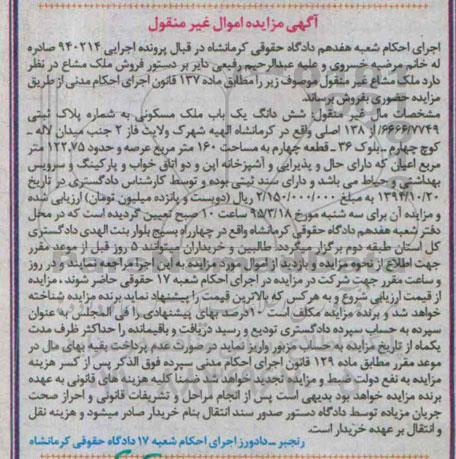 آگهی مزایده اموال غیر منقول
اجرای احکام شعبه هفدهم دادگاه حقوقی کرمانشاه در قبال پرونده اجرایی ۹۴۰۲۱۴ صادره
له خانم مرضیه خسروی و علیه عبدالرحیم رفیعی دایر بر دستور فروش ملک مشاع در نظر
دارد ملک مشاع غیر منقول موصوف زیر را مطابق ماده ۱۳۷ قانون اجرای احکام مدنی از طریق
مزایده حضوری بفروش برساند.
مشخصات مال غیر منقول: شش دانگ یک باب ملک مسکونی به شماره پلاک ثبتی
۶۶۶۶/۷۷۴۹/از ۱۳۸ اصلی واقع در کرمانشاه الهیه شهرک ولایت فاز ۲ جنب میدان لاله ـ
کوچ چهارم ـ بلوک ۳۶ ـ قطعه چهارم به مساحت ۱۶۰ متر مربع عرصه و حدود ۱۲۲,۷۵ متر
مربع اعیان که دارای حال و پذیرایی و آشپزخانه اپن و دو اتاق خواب و پارکینگ و سرویس
بهداشتی و حیاط می باشد و دارای سند ثبتی بوده و توسط کارشناس دادگستری در تاریخ
۱۳۹۴/۱۰/۲۰ به مبلغ ۲/۱۵۰/۰۰۰/۰۰۰ ریال (دویست و پانزده میلیون تومان) ارزیابی شده
و مزایده آن برای سه شنبه مورخ ۹۵/۳/۱۸ ساعت ۱۰ صبح تعیین گردیده است که در محل
دفتر شعبه هفدهم دادگاه حقوقی کرمانشاه واقع در چهارراه بسیج بلوار بنت الهدی دادگستری
کل استان طبقه دوم برگزار میگردد. طالبین و خریداران میتوانند ۵ روز قبل از موعد مقرر
جهت اطلاع از نحوه مزایده و بازدید از اموال مورد مزایده به این اجرا مراجعه نمایند و در روز
و ساعت مقرر جهت شرکت در مزایده در اجرای احکام شعبه ۱۷ حقوقی حاضر شوند ، مزایده
از قیمت ارزیابی شروع و به هر کس که بالاترین قیمت را پیشنهاد نماید برنده مزایده شناخته
خواهد شد و برنده مزایده مکلف است ۱۰درصد بهای پیشنهادی را فی المجلس به عنوان
سپرده به حساب سپرده دادگستری تودیع و رسید دریافت و باقیمانده را حداکثر ظرف مدت
یکماه از تاریخ مزایده به حساب مزبور واریز نماید در صورت عدم پرداخت بقیه بهای مال در
موعد مقرر مطابق ماده ۱۲۹ قانون اجرای احکام مدنی سپرده فوق الذکر پس از کسر هزینه
مزایده به نفع دولت ضبط و مزایده تجدید خواهد شد ضمنا کلیه هزینه های قانونی به عهده
برنده مزایده خواهد بود بدیهی است پس از انجام مراحل و تشریفات قانونی و احراز صحت
جریان مزیاده توسط دادگاه دستور صدور سند انتقال بنام خریدار صادر میشود و هزینه نقل
و انتقال بر عهده خریدار است.
رنجبر ـ دادورز اجرای احکام شعبه ۱۷ دادگاه حقوقی کرمانشاه